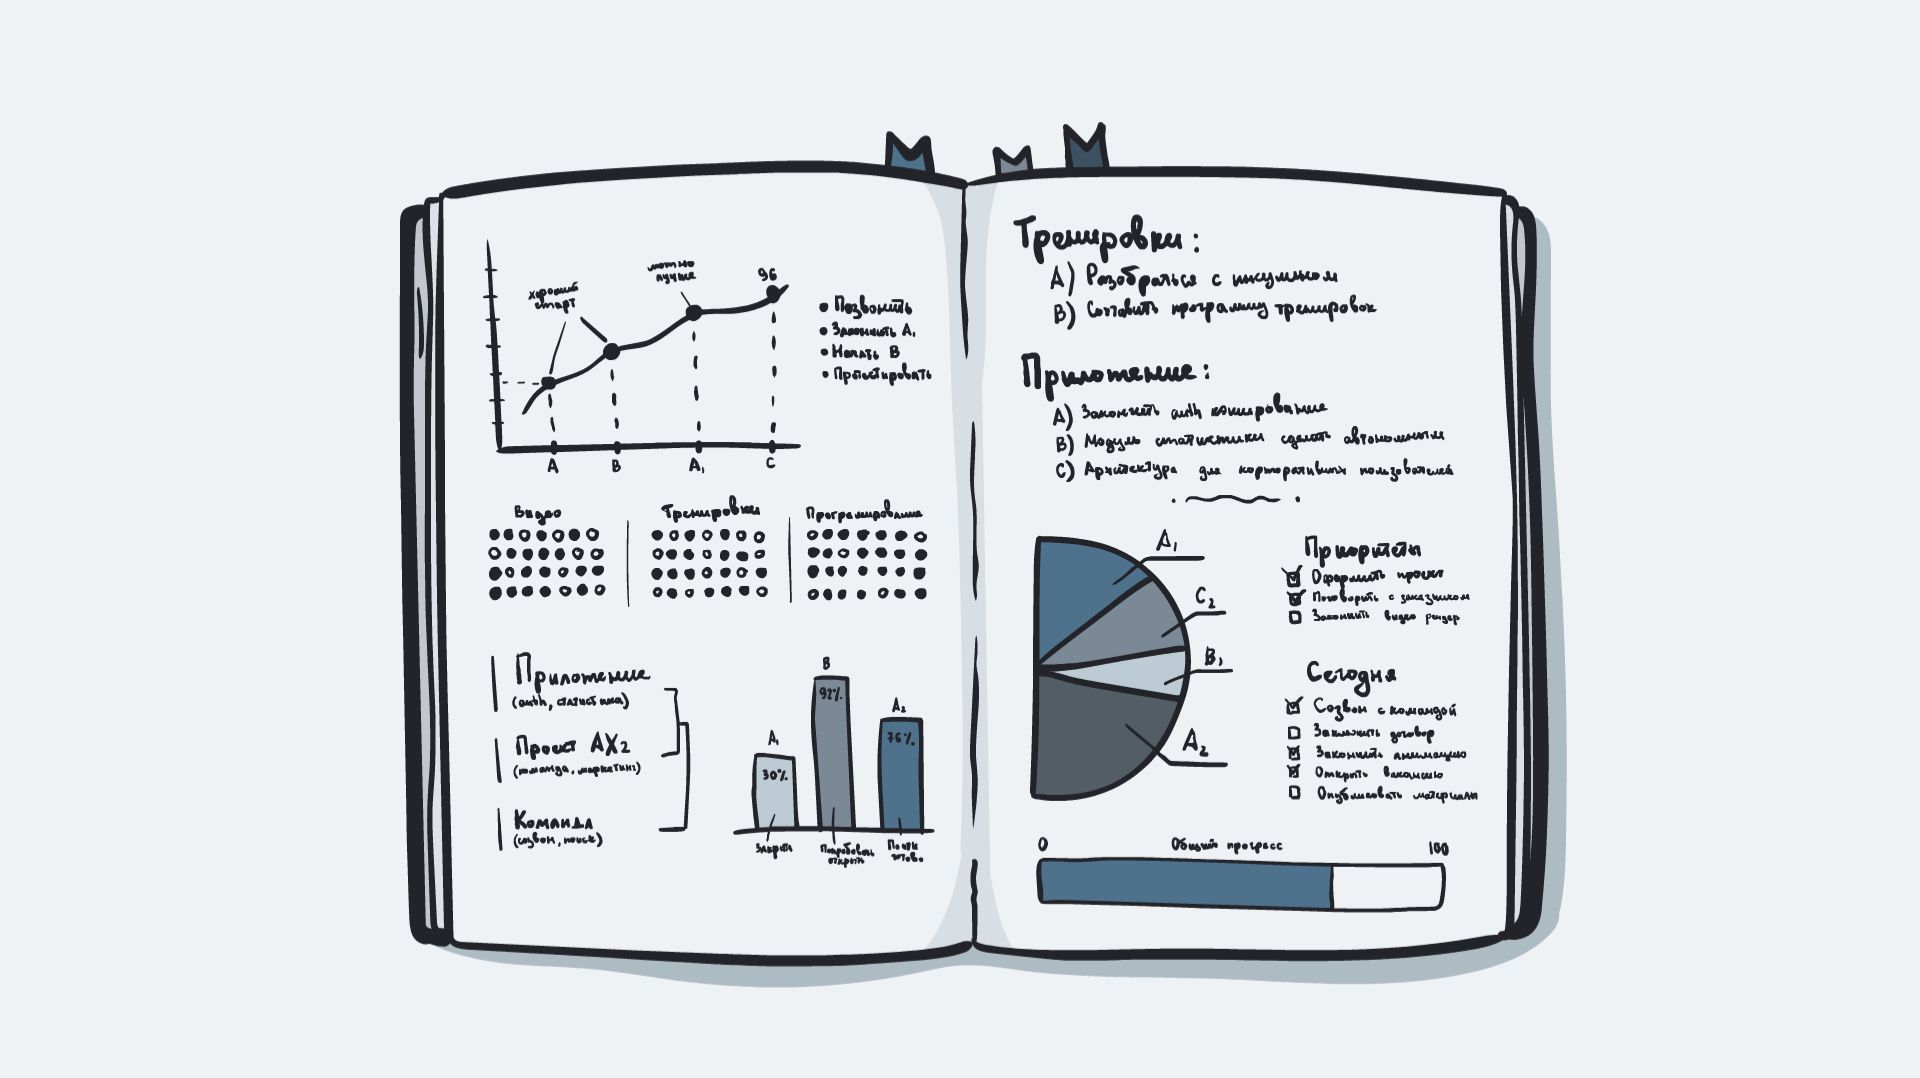 хороший
старт
можно
лучше
96
A
B
A₁
C
• Позвонить
• Закончить A₁
• Начать B
• Протестировать
Видео
Тренировки
Программирование
Приложение
(auth, статистика)
Проект AX2
(команда, маркетинг)
Команда
(созвон, поиск)
A₁
30%
B
92%
A₂
76%
Закрыть
Попробовать
открыть
Почти
готово
Тренировки:
A) Разобраться с
B) Составить программу тренировок
Приложение:
A) Закончить auth
B) Модуль статистики сделать автономным
C) Архитектура для корпоративных пользователей
A₁
C₂
B₁
A₂
Приоритеты
Оформить проект
Поговорить с заказчиком
Закончить видео рендер
Сегодня
Созвон с командой
Заключить договор
Закончить анимацию
Открыть вакансию
Опубликовать материалы
0
Общий прогресс
100